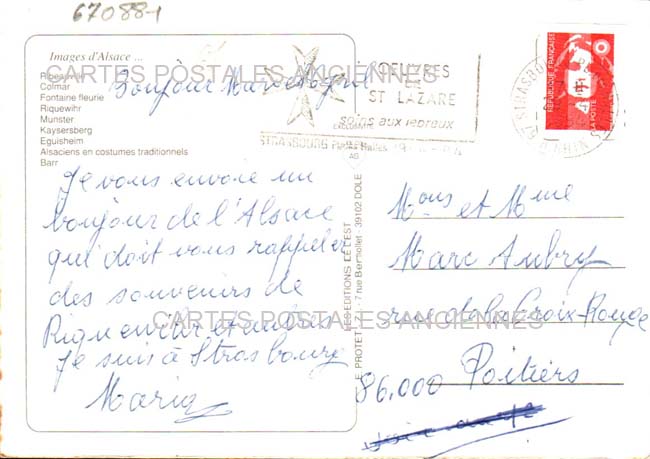 67088-1
Images d'Alsace ...
Ribeauvillé
Colmar
Fontaine fleurie
Riquewihr
Munster
Kaysersberg
Eguisheim
Alsaciens en costumes traditionnels
Barr
CARTES POSTALES ANCIENNES
Bonjour
Je vous envoie un
bonjour de l'Alsace
qui doit vous rappeler
des souvenirs de
Riquewihr et
Je suis à Strasbourg
CARTES POSTALES ANCIENNES
LES EDITIONS DE L'EST
7 rue Bermollet - 39102 DOLE
OEUVRES
DE
ST LAZARE
soins aux lépreux
STRASBOURG
REPUBLIQUE FRANÇAISE
LA POSTE
Mons et Mme
Marc Aubry
rue de la Croix-Rouge
86.000 Poitiers